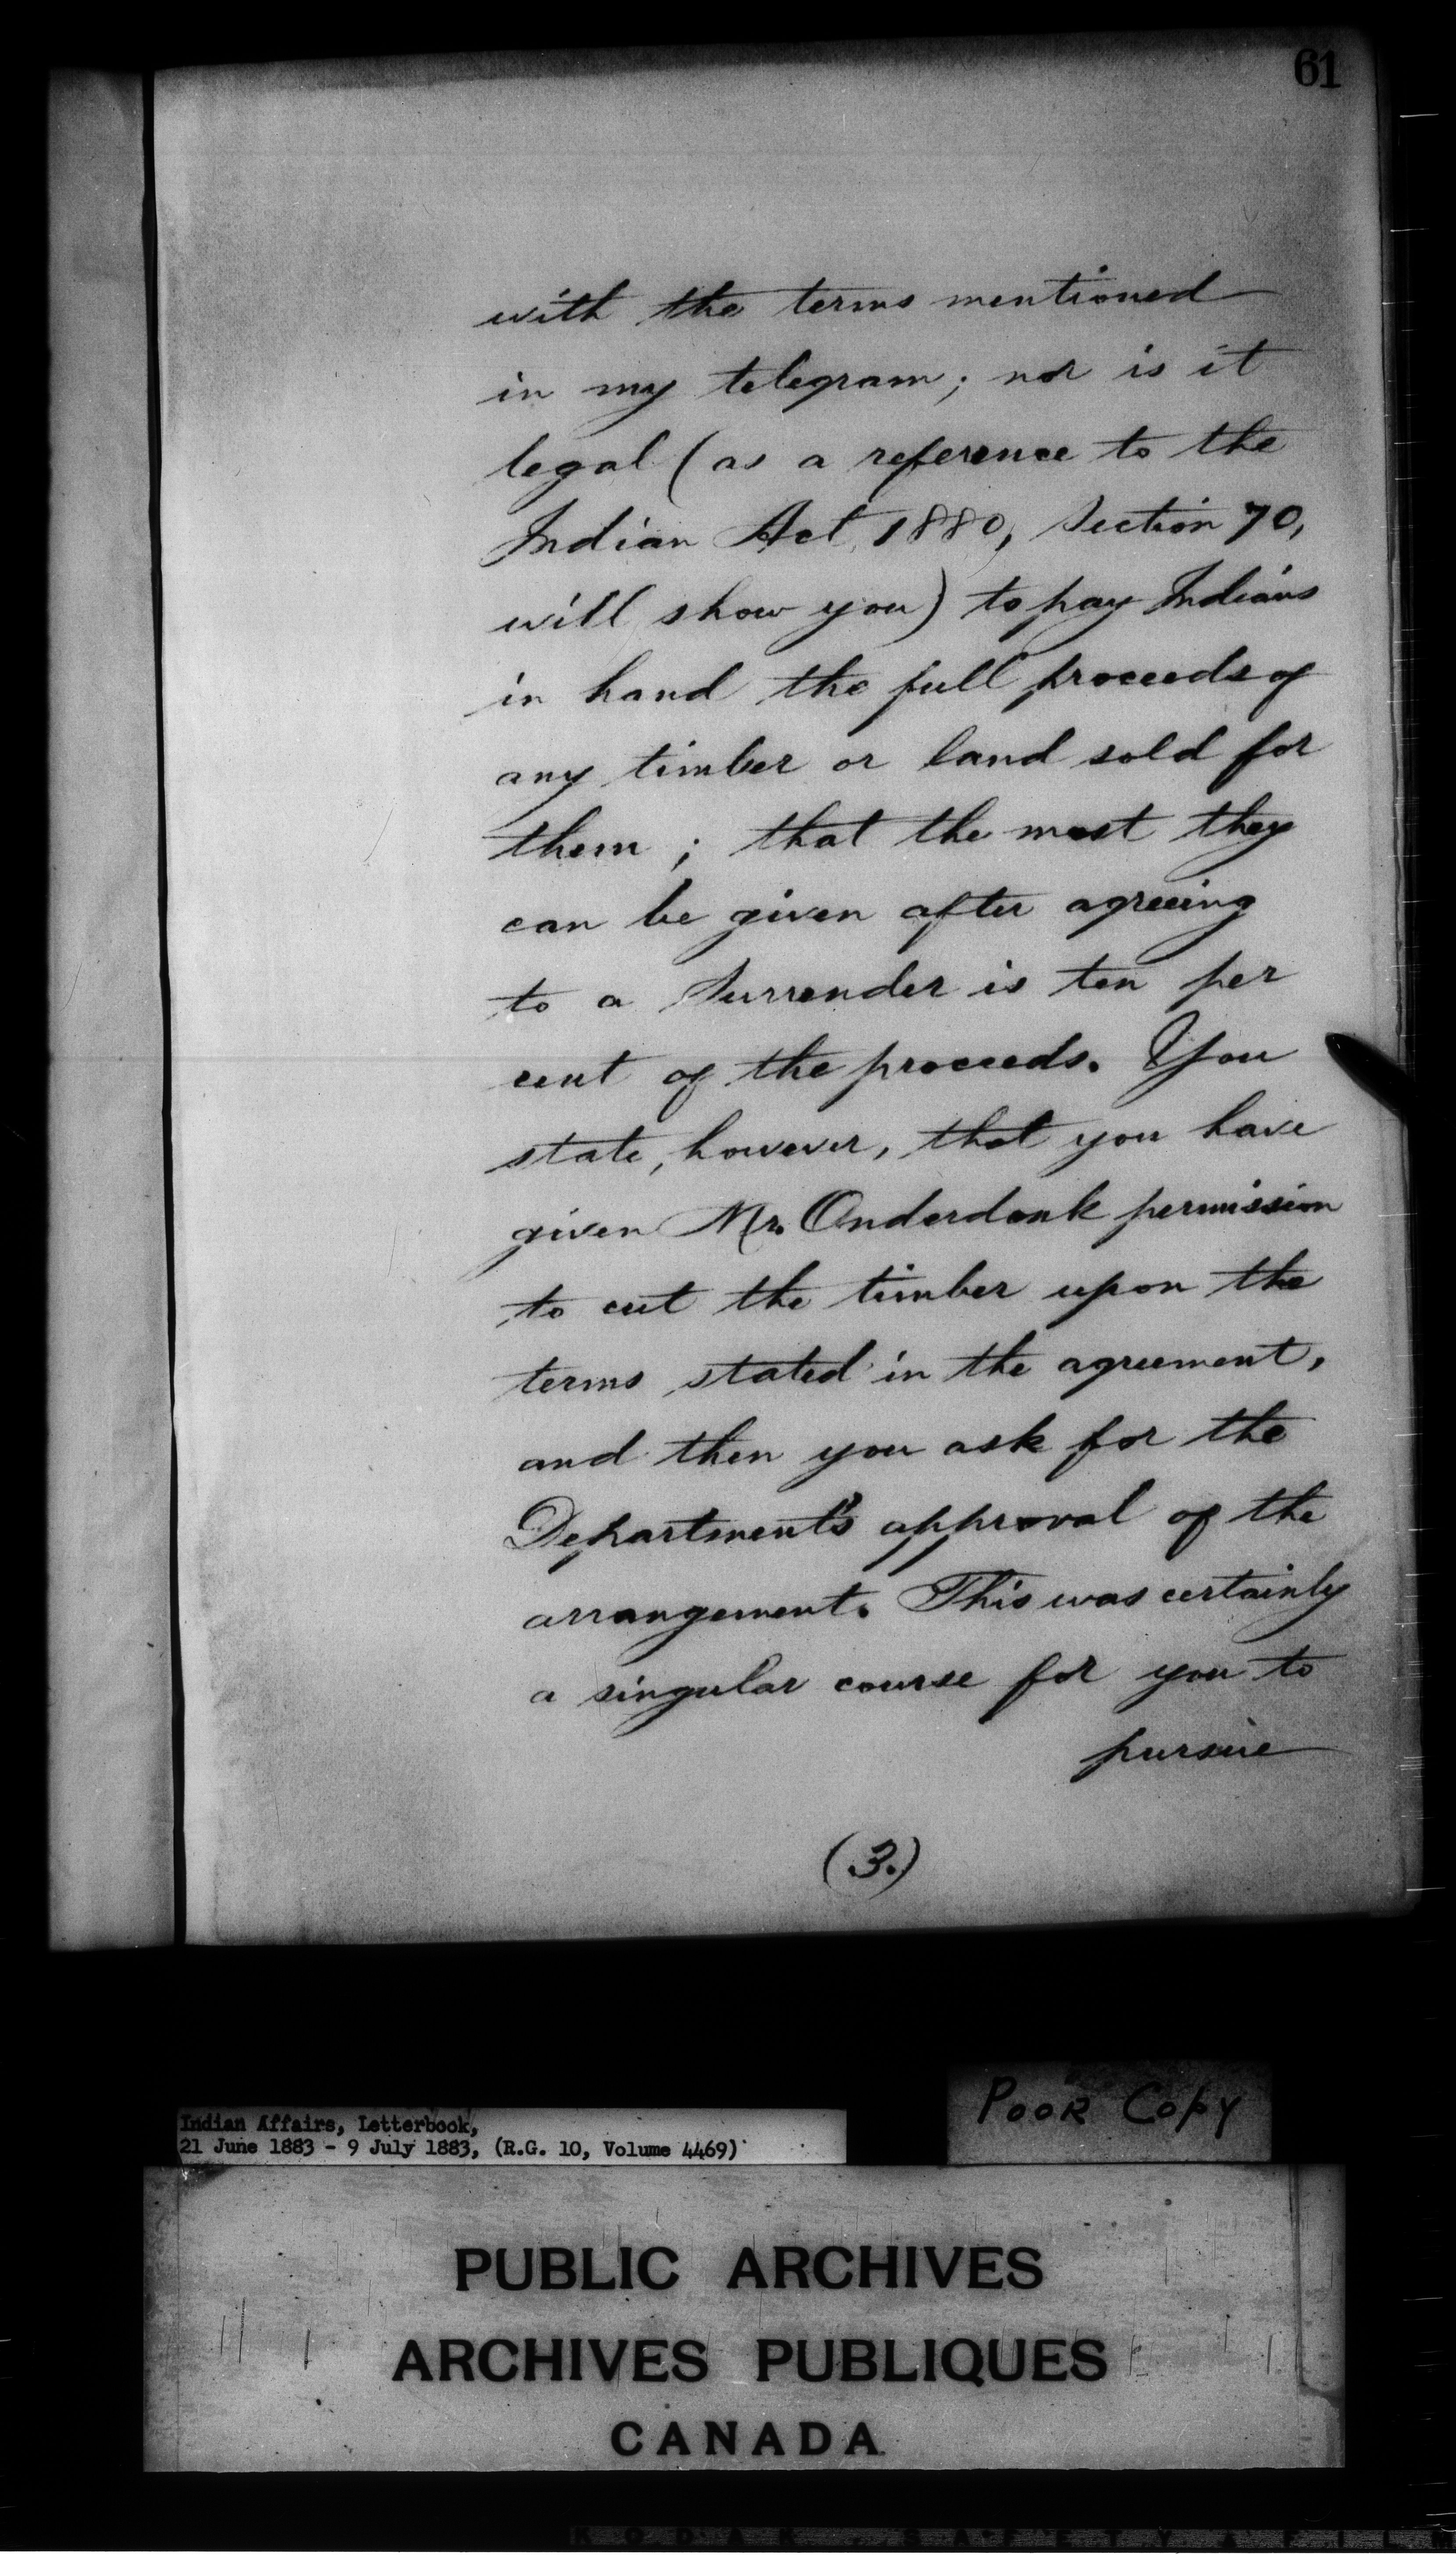 61
with the terms mentioned
in my telegram; nor is it
legal (as a reference to the
Indian Act, 1880, Section 70,
will show you) to pay Indians
in hand the full proceeds of
any timber or land sold for
them; that the most they
can be given after agreeing
to a Surrender is ten per
cent of the proceeds. You
state, however, that you have
given Mr. Onderdonk permission
to cut the timber upon the
terms stated in the agreement,
and then you ask for the
Department's approval of the
arrangement. This was certainly
a singular course for you to
pursue
(3.)
Poor Copy
Indian Affairs, Letterbook,
21 June 1883 - 9 July 1883, (R.G. 10, Volume 4469)
PUBLIC ARCHIVES
ARCHIVES PUBLIQUES
CANADA
KODAK SAFETY FILM